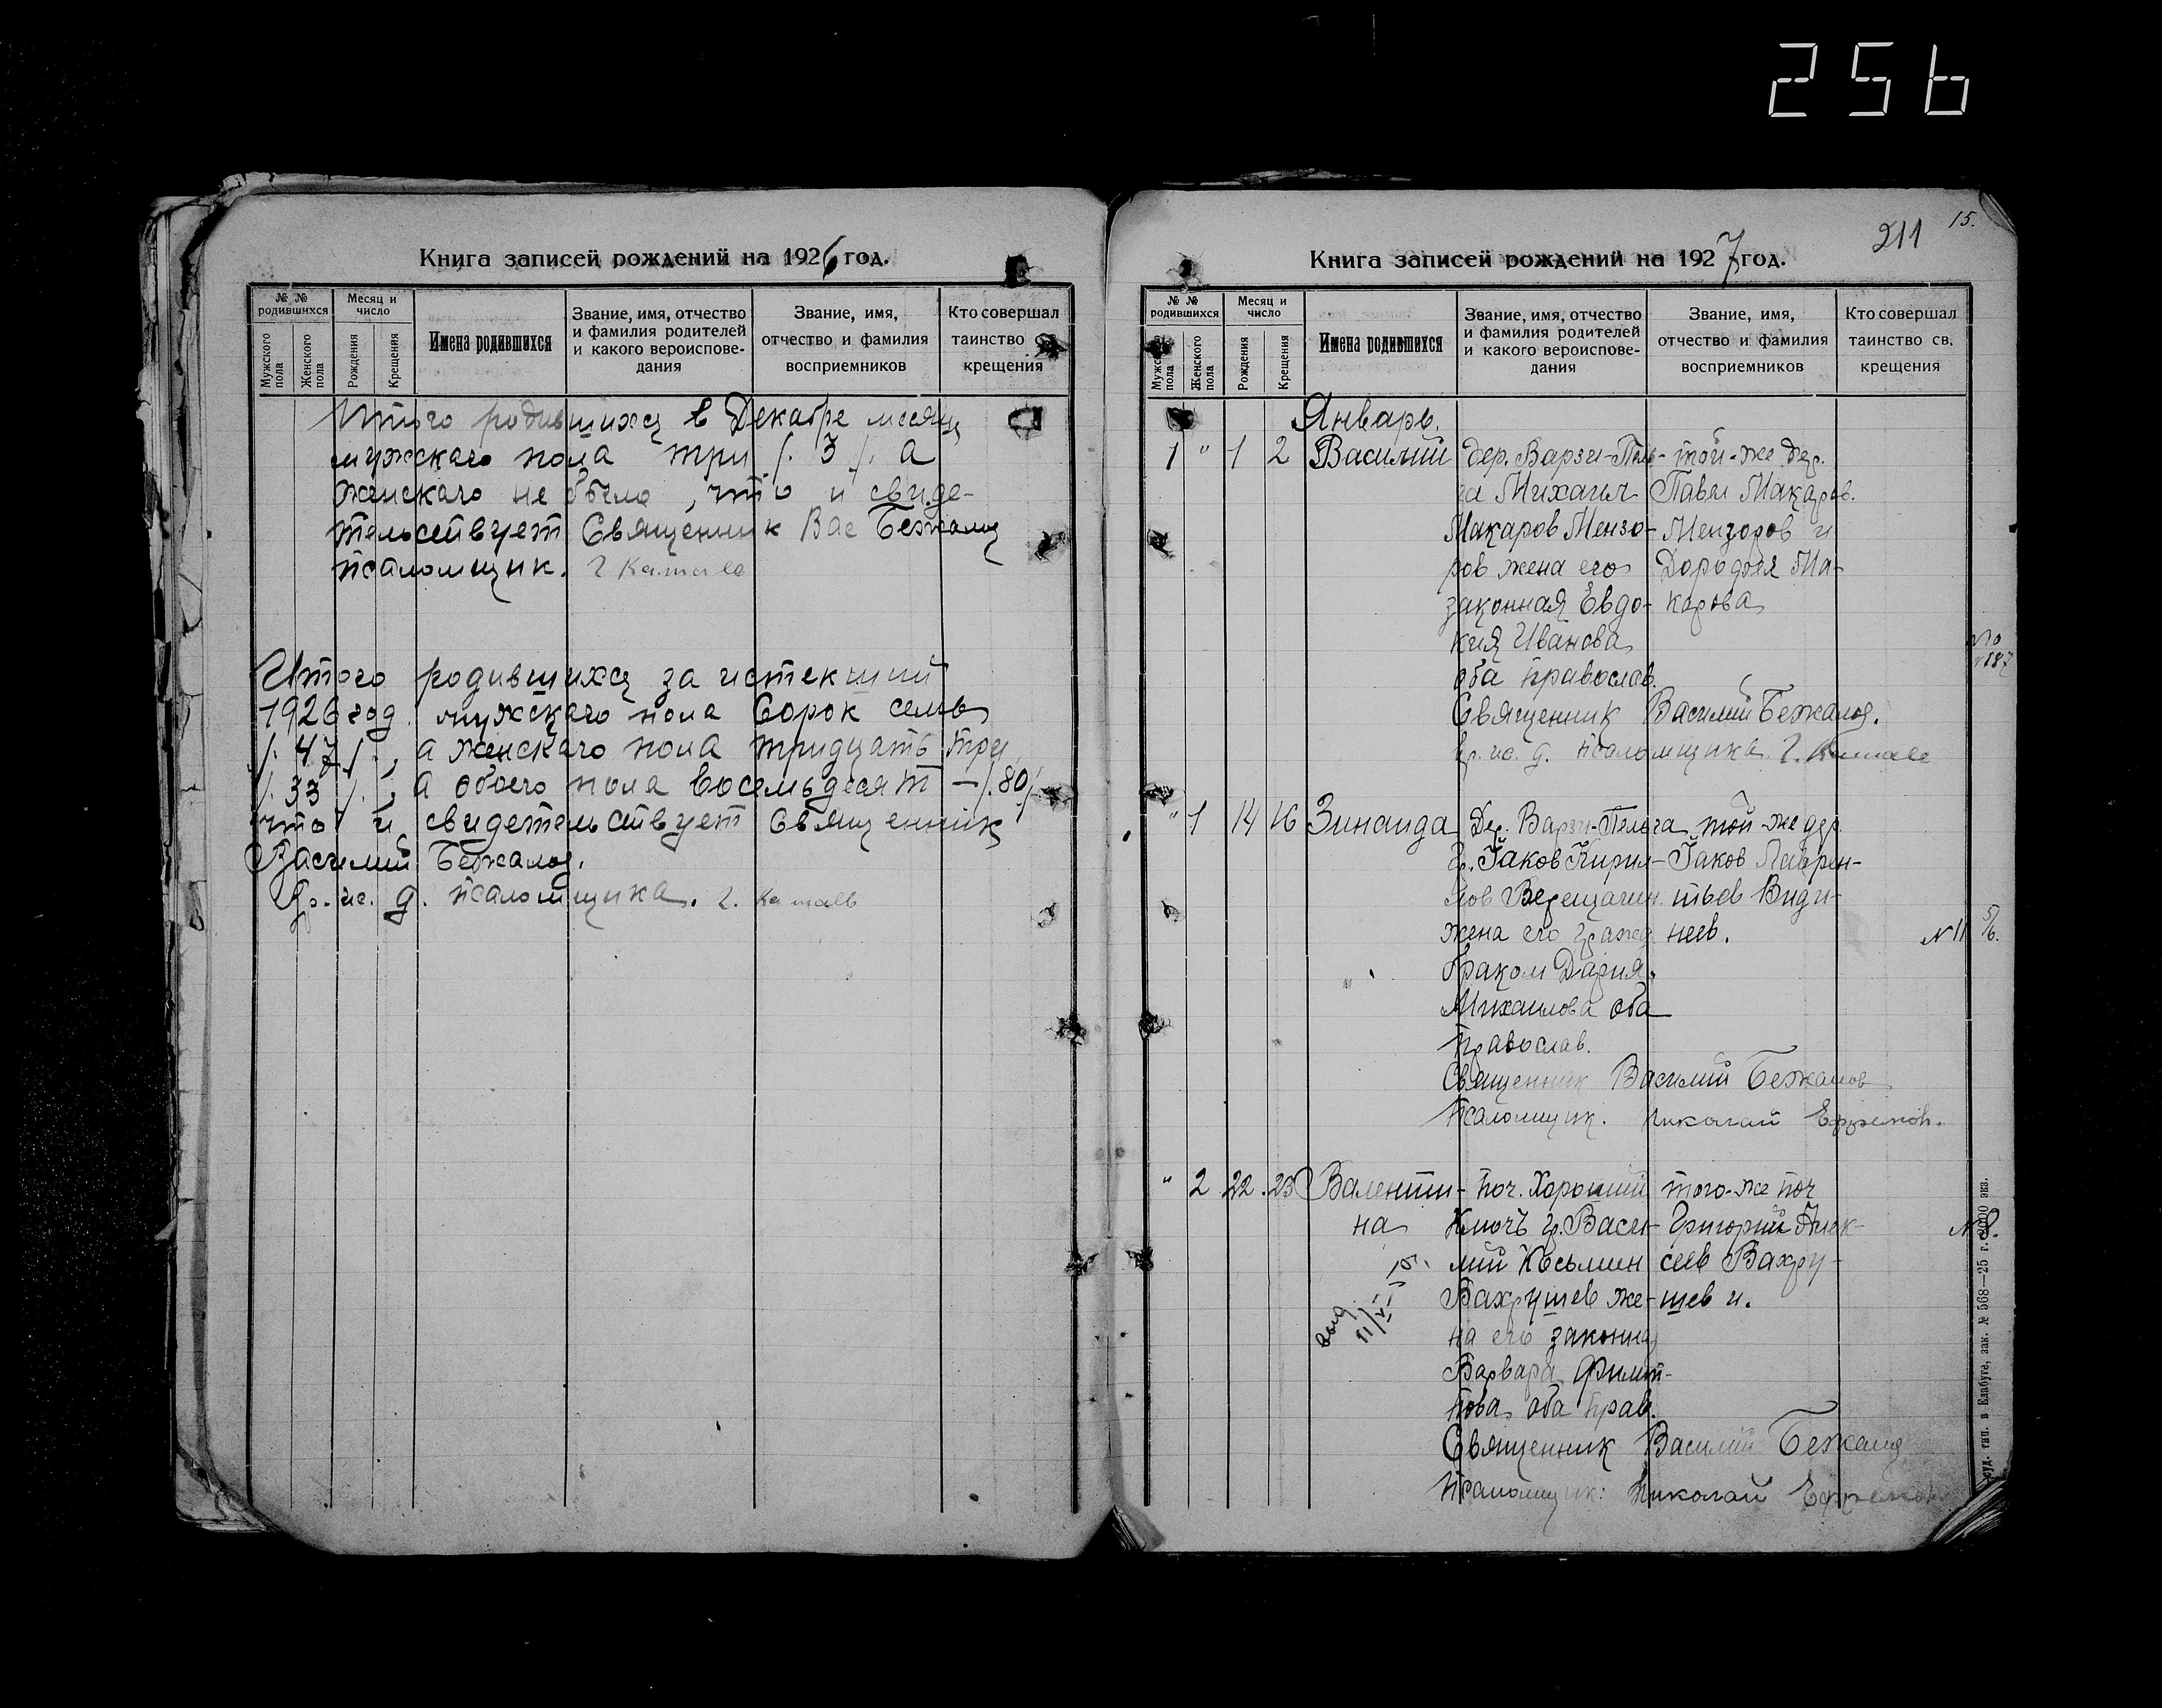 256
Книга записей рождений на 1926 год.
№ № родившихся
Мужского пола
Женского пола
Месяц и число
Рождения
Крещения
Имена родившихся
Звание, имя, отчество и фамилия родителей и какого вероисповедания
Звание, имя, отчество и фамилия восприемников
Кто совершал таинство св. крещения
Итого родившихся в Декабре месяц
мужского пола три /. 3 /. а
женского не было, что и свиде-
тельствует Священник Вас Бежалов
псаломщик.
Итого родившихся за истекший
1926 год мужского пола Сорок семь
/. 47 /., а женского пола тридцать три
/. 33 /., а обоего пола восемьдесят – /. 80 /.
что и свидетельствует Священник
Василий Бежалов.
Вр. ис. д. псаломщика.
15.
211
Книга записей рождений на 1927 год.
№ № родившихся
Мужского пола
Женского пола
Месяц и число
Рождения
Крещения
Имена родившихся
Звание, имя, отчество и фамилия родителей и какого вероисповедания
Звание, имя, отчество и фамилия восприемников
Кто совершал таинство св. крещения
Январь.
1 " 1 2 Василий дер. Варзи-Пель- той-же дер.
га Михаил Павел Макаров.
Макаров Мензо- Мензоров и
ров жена его Дородоея Ма-
законная Евдо- карова
кия Иванова
оба православ.
Священник Василий Бежалов.
вр. ис. д. псаломщика
" 1 14 16 Зинаида Дер. Варзи-Пельга той-же дер.
гр. Іаков Кирил- Іаков Лаврен-
лов Верещагин тьев Види-
жена его гражд неев.
№ 11 5/6.
браком Дария
Михаилова оба
православ.
Священник Василий Бежалов
Псаломщик. Николай Ефремов.
" 2 22 23 Валенти- поч. Хороший того-же поч
на Ключъ гр. Васи- Григорий Алек-
№ 8.
лий Косьмин сеев Вахру-
Вахрушев же- шев и.
на его законная
Варвара Филип-
пова оба прав.
Священник Василий Бежалов
Псаломщик: Николай Ефремов
тип. в Елабуге, зак. № 568—25 г. 3000 экз.